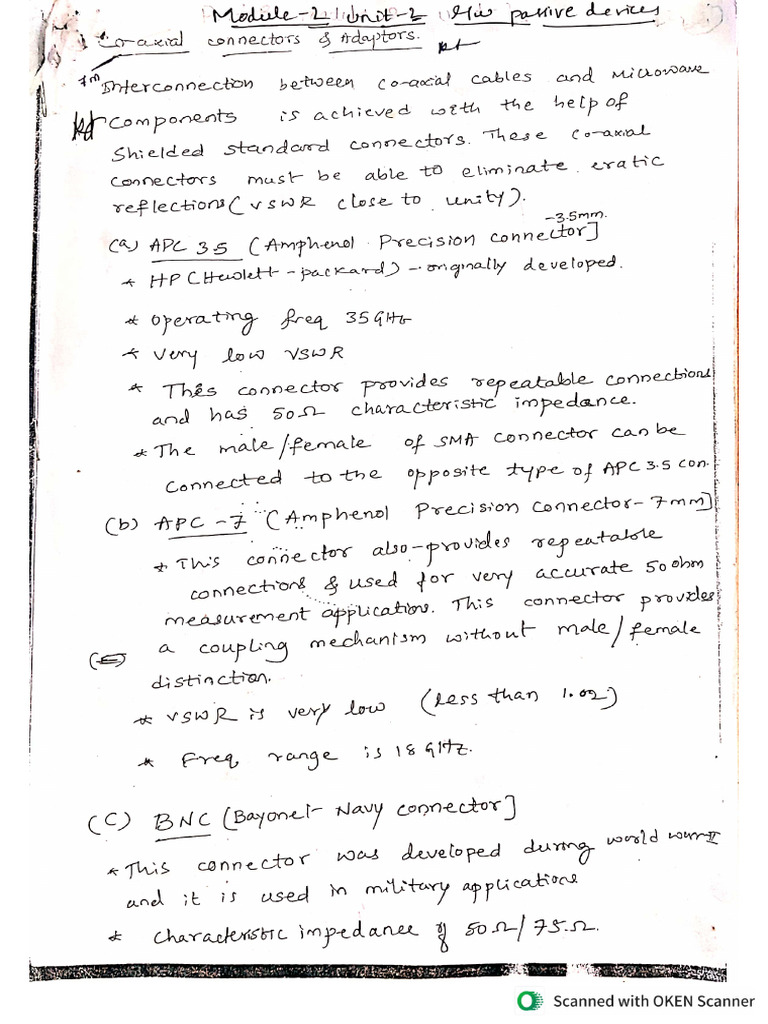 Module-2 / Unit-2 M/w passive devices
Co-axial connectors & Adaptors.
7m Interconnection between co-axial cables and Microwave
components is achieved with the help of
shielded standard connectors. These co-axial
connectors must be able to eliminate eratic
reflections (VSWR close to unity).
(a) APC 3.5 (Amphenol Precision connector -3.5mm.]
* HP (Hewlett-packard) - originally developed.
* Operating freq 35 GHz
* Very low VSWR
* This connector provides repeatable connections
and has 50Ω characteristic impedance.
* The male/female of SMA connector can be
connected to the opposite type of APC 3.5 con.
(b) APC -7 (Amphenol Precision Connector- 7mm]
* This connector also-provides repeatable
connections & used for very accurate 50 ohm
measurement application. This connector provides
a coupling mechanism without male/female
distinction.
* VSWR is very low (less than 1.02)
* Freq range is 18 GHz.
(C) BNC [Bayonet- Navy connector]
* This connector was developed during world war II
and it is used in military applications
* Characteristic impedance of 50Ω/75Ω.
Scanned with OKEN Scanner